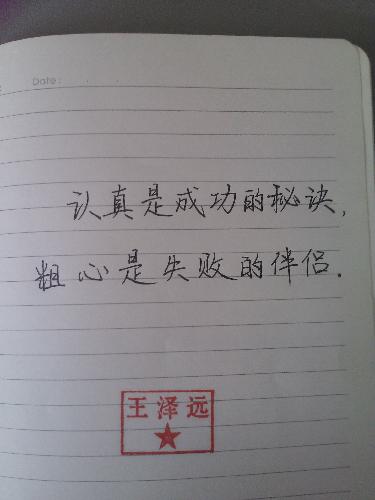 Date:
认真是成功的秘诀,
粗心是失败的伴侣.
王泽远